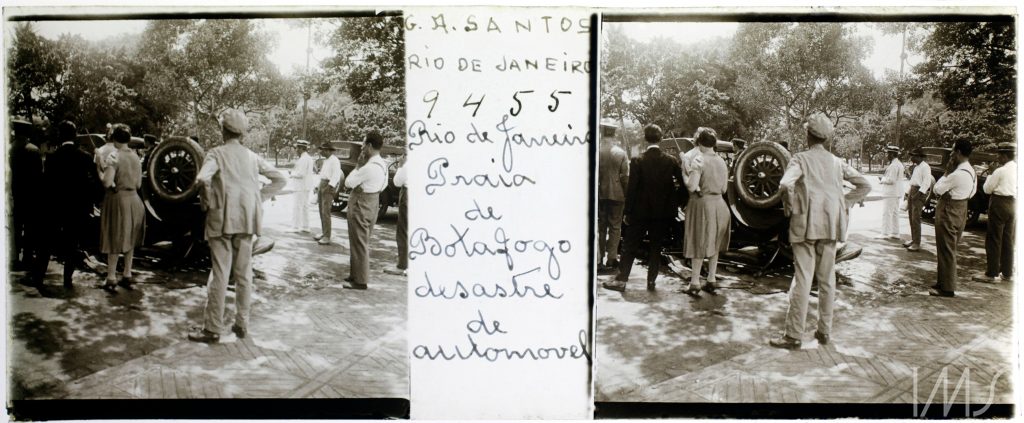 G. A. SANTOS
RIO DE JANEIRO
9455
Rio de Janeiro
Praia
de
Botafogo
desastre
de
automovel
IMS